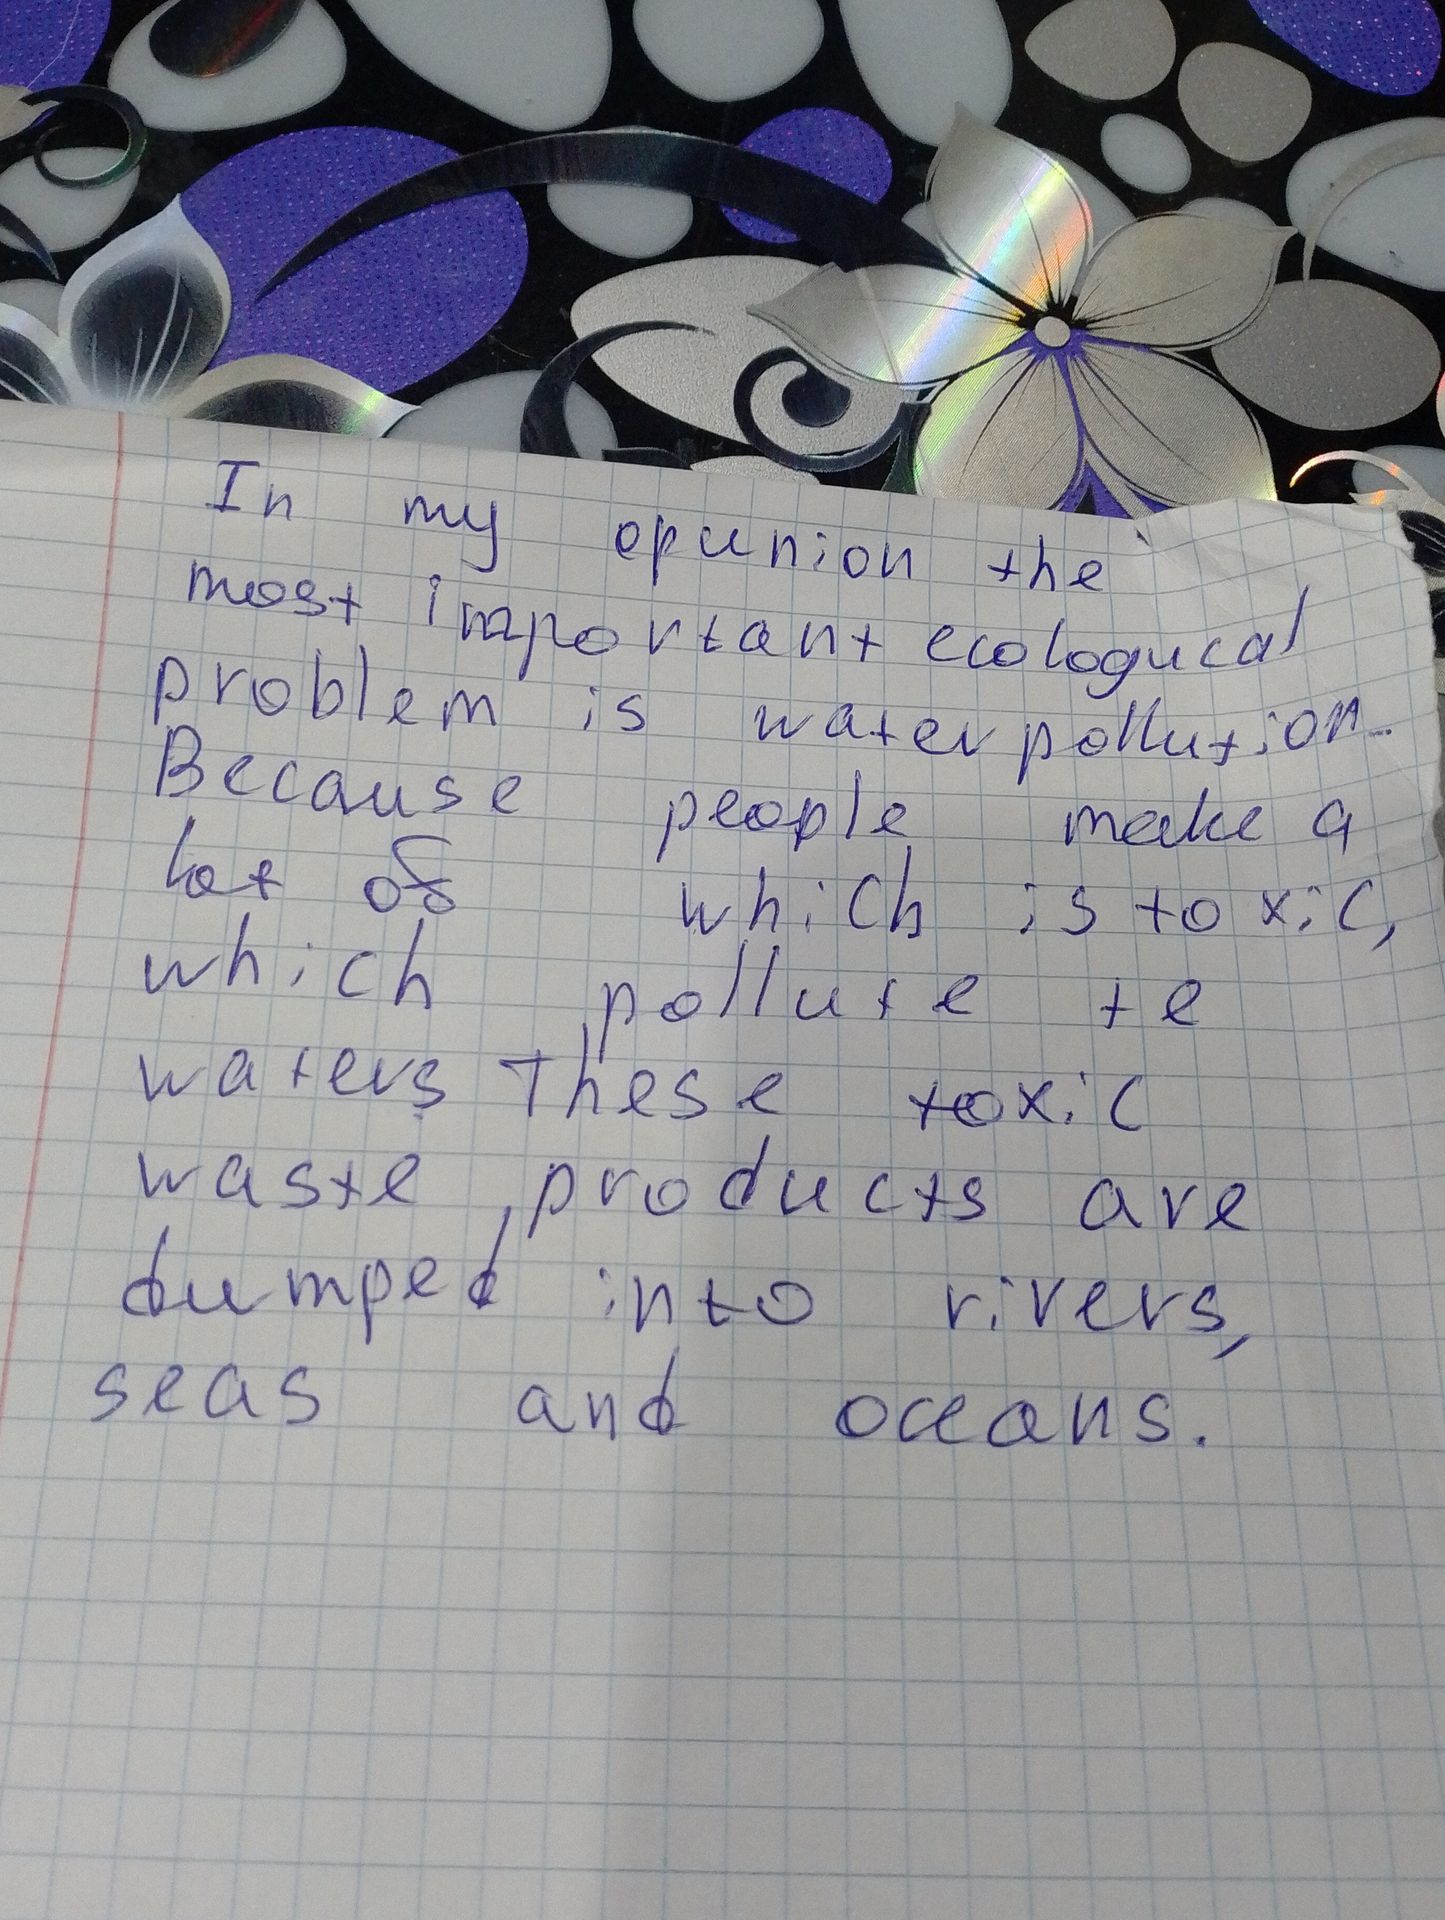 In my opunion the
most important ecologucal
problem is water pollution.
Because people make a
lot of which is toxic,
which pollute te
waters These toxic
waste products are
dumped into rivers,
seas and oceans.